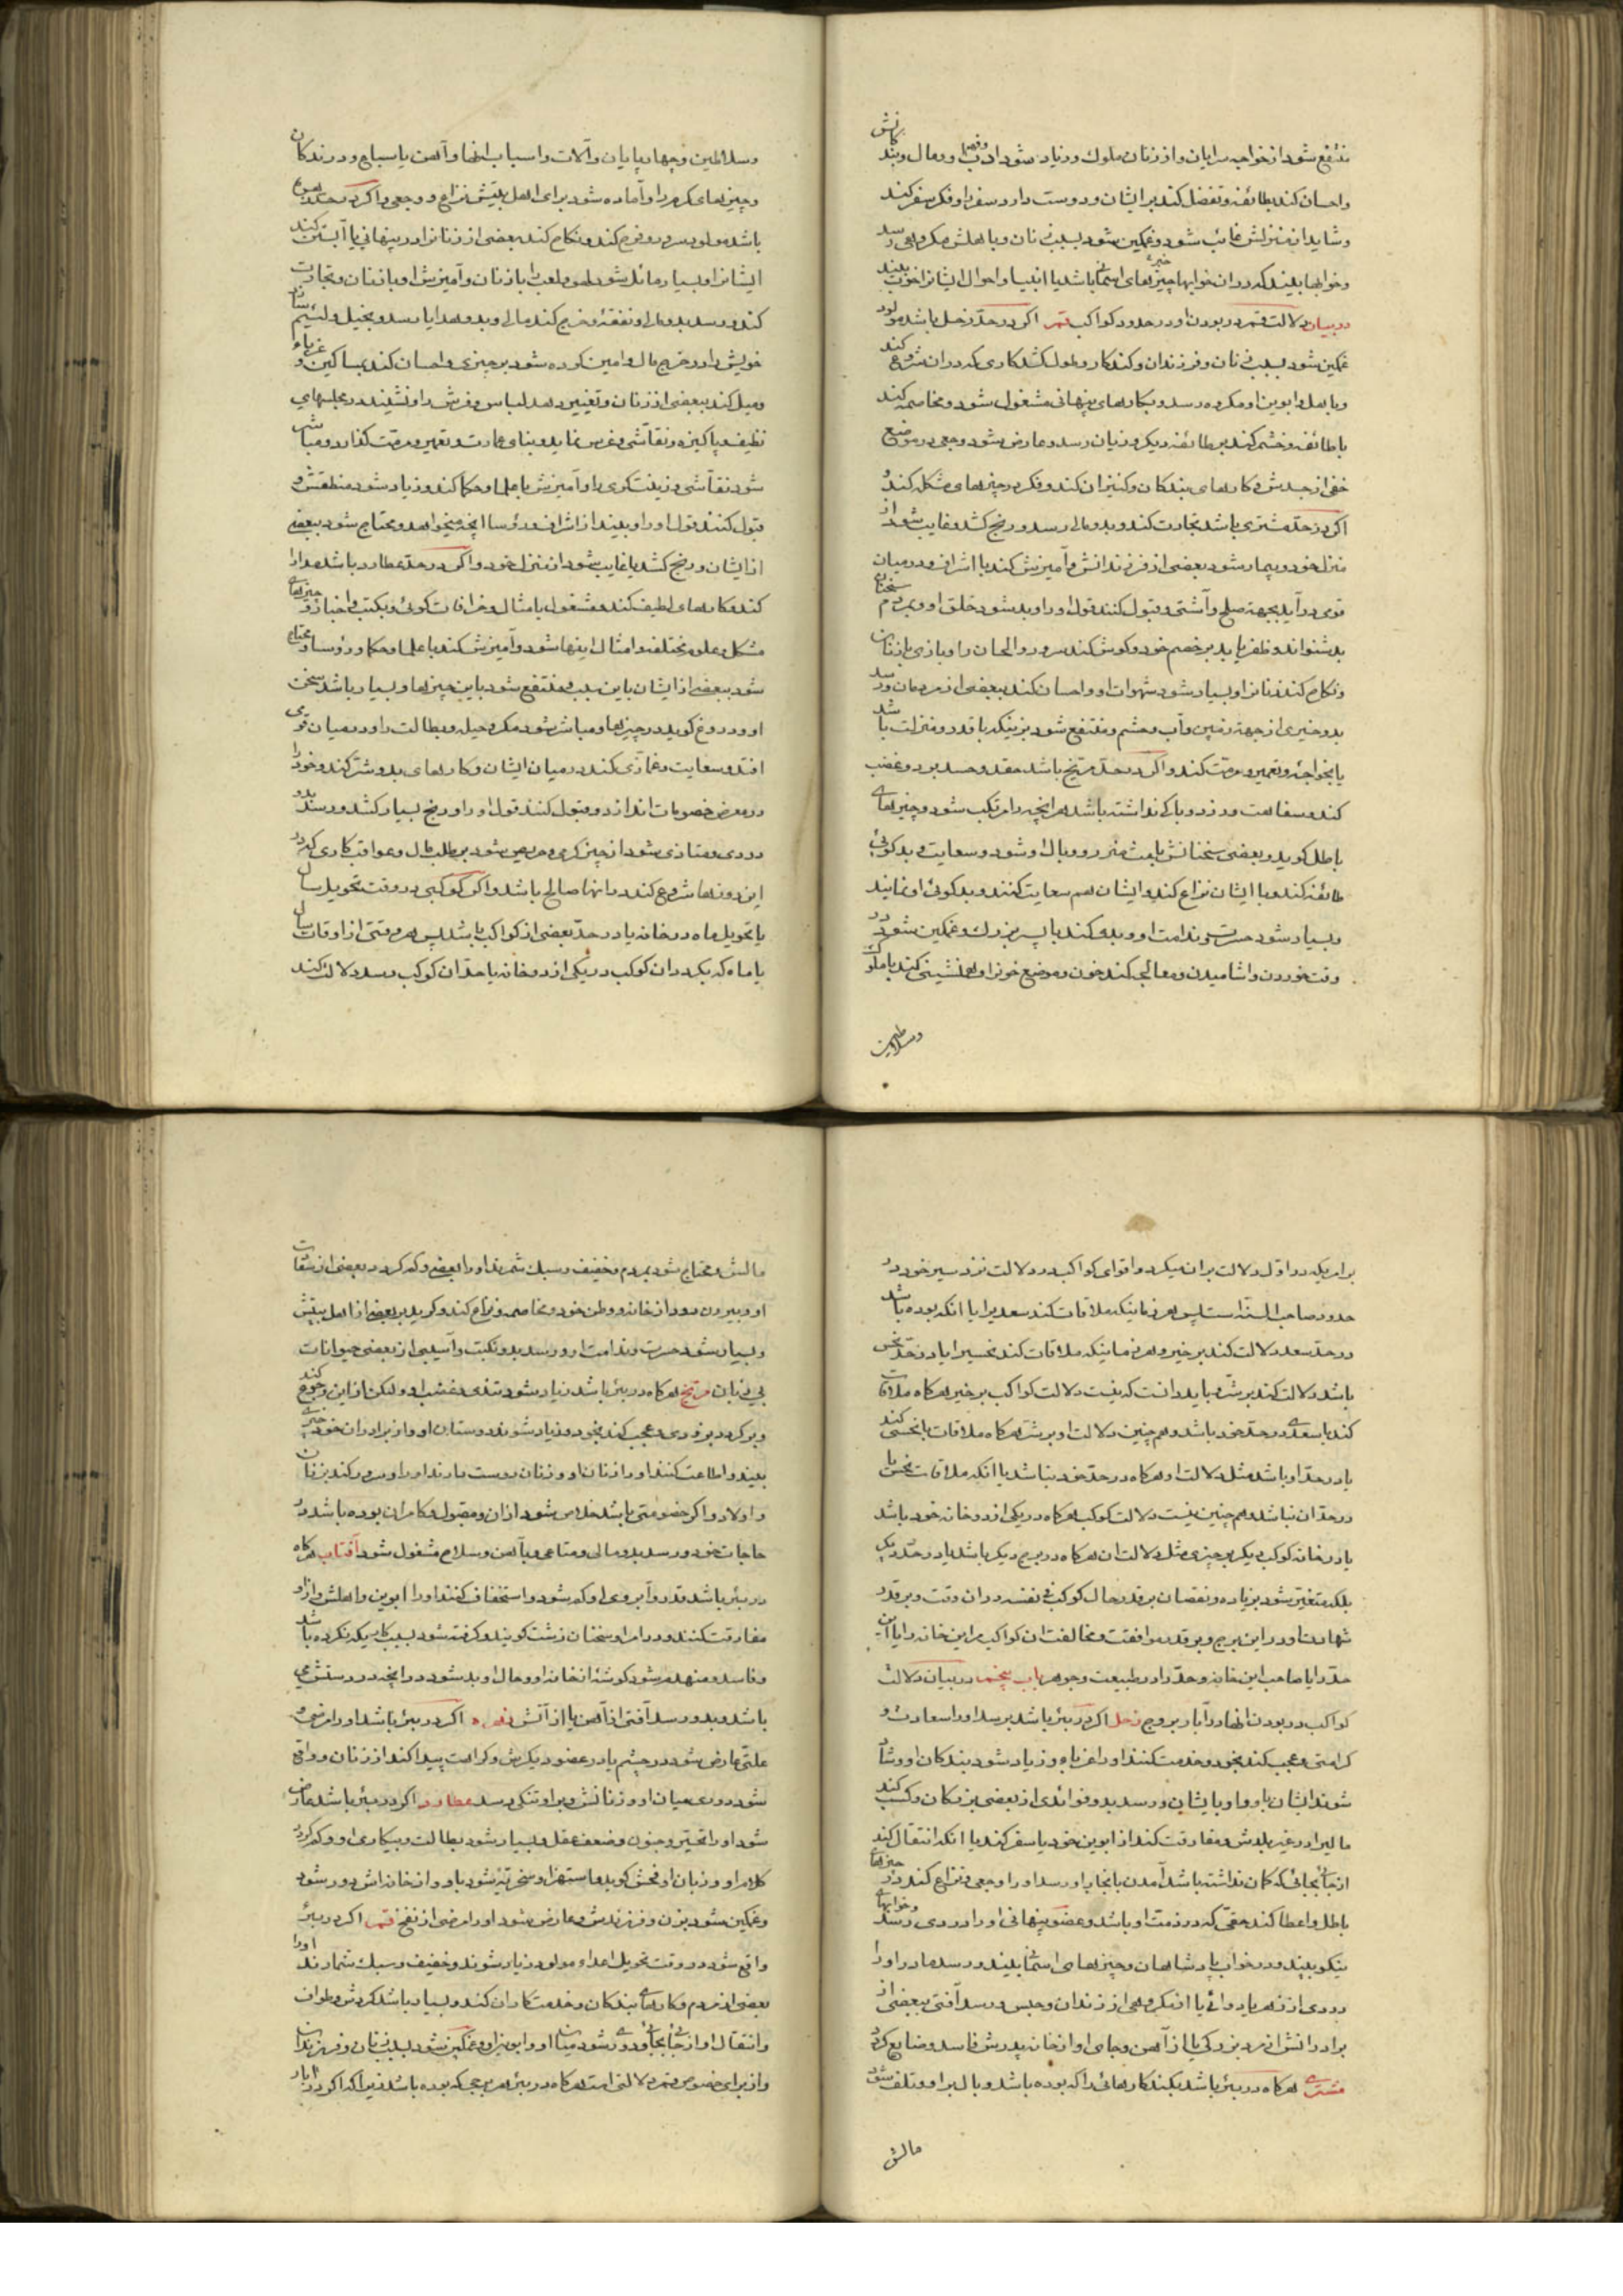 منتفع شود از خواجه سرایان و از زنان ملوک و زیاد شود ادب و فهم او و مال و بندگانش
و احسان کند بطائفه و تفضل کند بر ایشان و دوست دارد سفر را و فکر سفر کند
و شاید از منزلش غائب شود و غمکین شود بسبب زنان و باهلش مکروهی رسد
و خوابها بیند که در ان خوابها خیر چیزهای اسمانی باشد یا انبیا و احوال ایشانرا خوب بیند
در بیان دلالت قمر در بودن او در حدود کواکب قمر اکر در حد زحل باشد مولود
غمکین شود بسبب زنان و فرزندان و کند کار و طول کشد کاری که در ان شروع کند
و باهل و ابوین او مکروه رسد و بکارهای پنهانی مشغول شود و مخاصمه کند
با طائفه و خشم کند بر طائفه دیکر و زیان رسد و عارض شود وجعی در موضع
خفی از جسدش و کارهای بندکان و کنیزان کند و فکر در چیزهای مشکله کند و
اکر در حد مشتری باشد تجارت کند و بدو مالی رسد و رنج کشد و غایب شود از
منزل خود و بیمار شود بعضی از فرزندانش و آمیزش کند با اشراف و در میان
قومی در آید بجهة صلح و آشتی و قبول کنند قول او را و بد شود خلق او و بمردم سخنان
بد شنواند و ظفر یابد بر خصم خود و کوش کند سرود و الحان را و بازی با زنان
و نکاح کند زنانرا و بسیار شود شهوات او و احسان کند ببعضی از مردمان و رسد
بدو خیری از جهة زمین و آب و حشم و منتفع شود بزنیکه با قدر و منزلت باشد
یا بخواجه و تعمیر و مرمت کند و اکر در حد مریخ باشد حقد و حسد برد و غضب
کند و سفاهت ورزد و باکی نداشته باشد هر انچه را مرتکب شود و چیزهای
باطل کوید و بعضی سخنانش باعث ضرر و وبال او شود و سعایت و بدکوئی
طائفه کند و با ایشان نزاع کند و ایشان هم سعایت کنند و بدکوئی او نمایند
و بسیار شود حسرت و ندامت او و بدی کند با پسر بزرک و غمکین شود در
وقت خوردن و اشامیدن و معالجه کند خون و موضع خونرا و همنشینی کند با ملوک
و سلاطین
و سلاطین و چهارپایان و آلات و اسباب انها و آهن یا سباع و درندکان
و چیزهای مکرم را و آماده شود برای اهل بیتش نزاع و وجعی و اکر در حد زهره
باشد مولود سرور و فرح کند و نکاح کند بعضی از زنانرا در پنهانی یا آبستن کند
ایشانرا و بسیار مائل شود بلهو و لعب را با زنان و آمیزش او با زنان و تجارت
کند و رسد بدو مال و نفقه و خرج کند مال و بدو هدایا رسد و بخیل و لئیم شمارند
خویش را در خرج مال و امین کرده شود بر چیزی و احسان کند بمساکین و غرباء
و میل کند ببعضی از زنان و تغییر دهد لباس و فرش را و نشیند در مجلسهای
نظیف و پاکیزه و نقاشی و غرس نماید و بنای عمارت و تعمیر و مرمت کذارد و مباشر
شود نقاشی و زینت کری را و آمیزش با علما و حکما کند و زیاد شود منطقش و
قبول کنند قول او را و بیند از اشراف و رؤسا انچه میخواهد و محتاج شود ببعضی
از ایشان و رنج کشد یا غایب شود از منزل خود و اکر در حد عطارد باشد مدارا
کند و کارهای لطیف کند و مشغول بامثال و خرافات کوئی و بکتب و اخبار و چیزهای
مشکل و علوم مختلفه و امثال اینها شود و آمیزش کند با علما و حکما و رؤسا و محتاج
شود ببعضی از ایشان باین سبب و منتفع شود باین چیزها و بسیار باشد سخن
او و دروغ کوید در چیزها و مباشر شود مکر و حیله و بطالت را و در میان قومی
افتد و سعایت و غمازی کند در میان ایشان و کارهای بد و شر کند و خود را
در معرض خصومات اندازد و قبول کنند قول او را و رنج بسیار کشد و رسد بدو
دردی و متاذی شود از چیز کرمی و حریص شود بر طلب مال و عواقب کاری که در
این روزها شروع کند در انها صالح باشد و اکر کوکبی در وقت تحویل سال
یا تحویل ماه در خانه یا در حد بعضی از کواکب باشد پس هر وقتی از اوقات سال
یا ماه که بکردد ان کوکب در یکی از دو خانه یا حد ان کوکب رسد دلالت کند
بر امریکه در اول دلالت بر ان میکرد و اقوای کواکب در دلالت نزد سیر خود در
حدود صاحب السنة است پس هر زمانیکه ملاقات کند سعدیرا یا انکه بوده باشد
در حد سعد دلالت کند بر خیر و هر زمانیکه ملاقات کند نحسیرا یا در حد نحس
باشد دلالت کند بر شر و باید دانست که نیست دلالت کواکب بر خیر هرکاه ملاقات
کند با سعدی در حد خود باشد و هم چنین دلالت او بر شر هرکاه ملاقات با نحسی کند
یا در حد او باشد مثل دلالت او هرکاه در حد خود نباشد یا انکه ملاقات نحس با
در حد ان نباشد و هم چنین نیست دلالت کوکب هرکاه در یکی از دو خانه خود باشد
یا در خانه کوکب دیکر بر چیزی مثل دلالت ان هرکاه در برج دیکر باشد یا در حد دیکر
بلکه متغیر شود بزیاده و نقصان بر قدر حال کوکب فی نفسه در ان وقت و بر قدر
شهادت او در این برج و بر قدر موافقت و مخالفت ان کواکب مر این خانه را یا این
حد را یا صاحب این خانه و حد را در طبیعت و جوهر باب پنجم در بیان دلالت
کواکب در بودن انها در آبار بروج زحل اکر در بئر باشد برسد او را سعادت و
کرامتی و عجب کند بخود و خدمت کنند او را غرباء و زیاد شود بندکان او و شاد
شوند ایشان باو و او بایشان و رسد بدو فوائدی از بعضی بزرکان و کسب کند
مالیرا در غیر بلدش و مفارقت کند از ابوین خود یا سفر کند یا انکه انتقال کند
از جائی بجائی که کمان نداشته باشد آمدن بانجا را و رسد او را وجعی و نزاع کند در چیزهای
باطل و اعطا کند حقی که در ذمت او باشد و عضو پنهانی او را دردی رسد و خوابهای
نیکو ببیند و در خواب پادشاهان و چیزهای اسمانی بیند و رسد مادر او را
دردی از زهر یا دوائی یا از مکروهی از زندان و حبس و رسد آفتی ببعضی از
برادرانش از مرد بزرکی یا از آهن و جای او از خانه پدرش فاسد و ضایع کردد
مشتری هرکاه در بئر باشد بکند کارهائی را که بوده باشد وبال بر او و تلف شود
مالش
مالش و محتاج شود بمردم و خفیف و سبک شمرند او را بعضی و کم کردد بعضی از مشقات
او و بیرون رود از خانه و وطن خود و مخاصمه و نزاع کند و کرید بر بعضی از اهل بیتش
و بسیار شود حسرت و ندامت او و رسد بدو نکبت و آسیبی از بعضی حیوانات
بی زبان مریخ هرکاه در بئر باشد زیاد شود تندی و غضب او ولیکن از این رجوع کند
و برکردد بزودی و عجب کند بخود و زیاد شوند دوستان او و از برادران خود خیری
بیند و اطاعت کنند او را زنان او و زنان دوست دارند او را و سرور کند بزنان
و اولاد و اکر خصومتی باشد خلاص شود از ان و مقبول و کامران بوده باشد در
حاجات خود و رسد بدو مالی و متاعی و بآهن و سلاح مشغول شود آفتاب هرکاه
در بئر باشد قدر و آبروی او کم شود و استخفاف کنند او را ابوین و اهلش و از او
مفارقت کنند و در امر او سخنان زشت کویند و کرفته شود بسبب کاریکه نکرده باشد
و فاسد و منهدم شود کوشه از خانه او و حال او بد شود در انچه در دستش می
باشد و بدو رسد آفتی از آهن یا از آتش زهره اکر در بئر باشد او را مرضی و
علتی عارض شود در چشم یا در عضو دیکرش و کراهت پیدا کند از زنان و واقع
شود دوری میان او و زنانش و بر او تنکی رسد عطارد اکر در بئر باشد عارض
شود او را تحیر و جنون و ضعف عقل و بسیار شود بطالت و بیکاری او و کم کردد
کلام او و زبان او فحش کوید و استهزا و سخریه شود باو و از خانه اش دور شود
و غمکین شود بزن و فرزندش و عارض شود او را مرضی از نفخ قمر اکر در بئر
واقع شود در وقت تحویل اعداء مولود زیاد شوند و خفیف و سبک شمارند او را
بعضی از مردم و کارهای بندکان و خدمتکاران کند و بسیار باشد کردش و طواف
و انتقال او از جائی بجائی و دوری شود میان او و ابوین او و غمکین شود بسبب زنان و فرزندان
و از برای خصوص قمر دلالتی است هرکاه در بئر هر برجی که بوده باشد زیرا که اکر در آبار